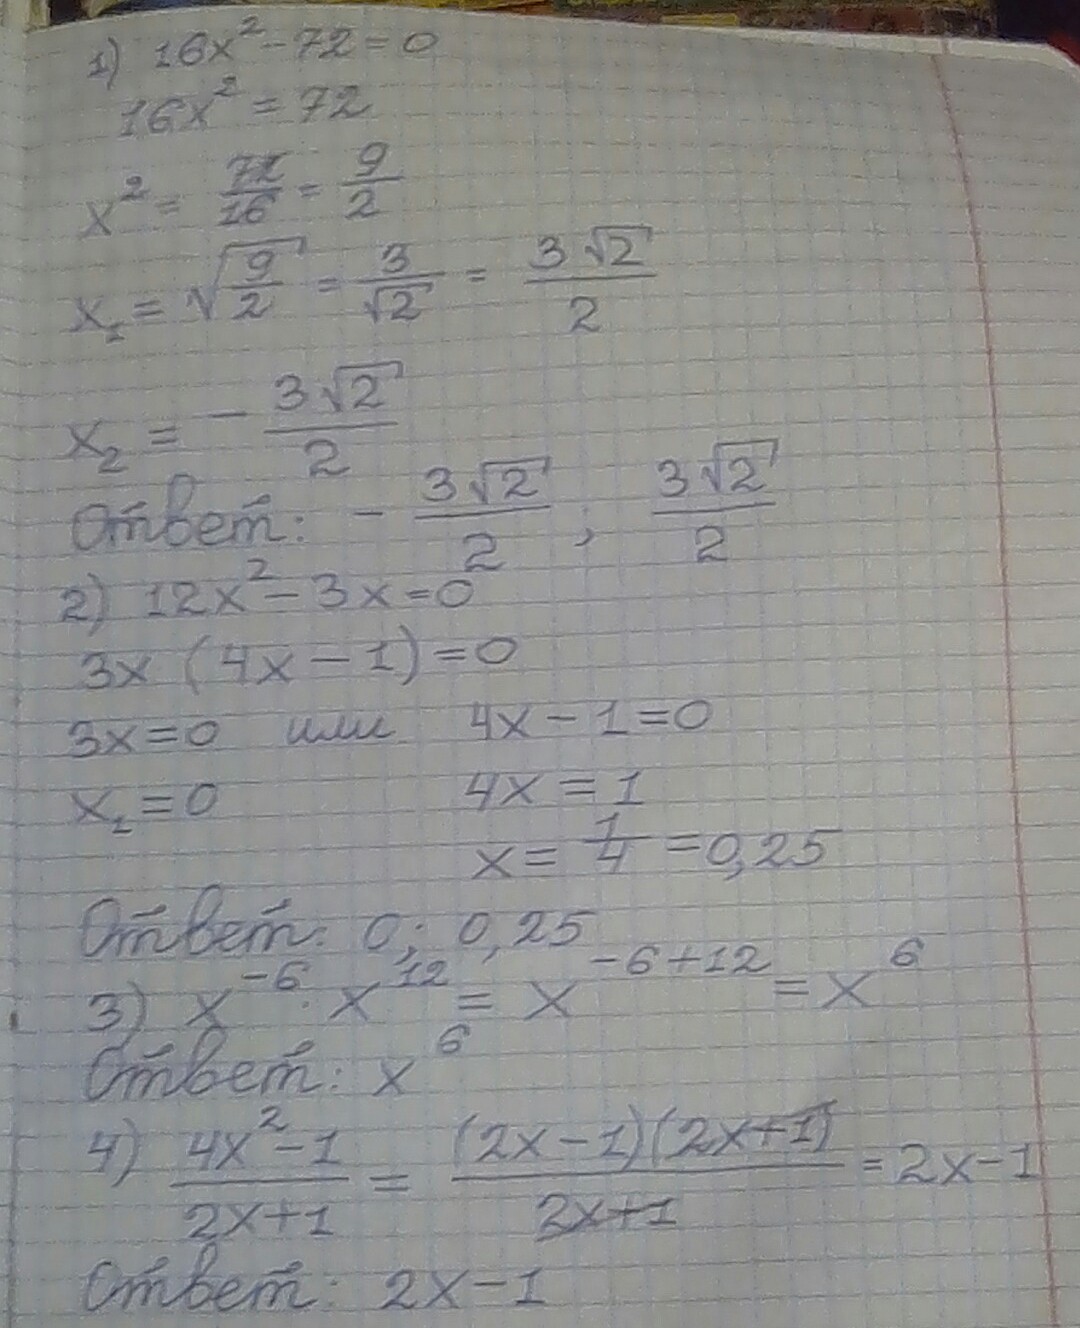 1) 16x² - 72 = 0
16x² = 72
x² = 72/16 = 9/2
x₁ = √(9/2) = 3/√2 = 3√2/2
x₂ = - 3√2/2
Ответ: - 3√2/2 ; 3√2/2
2) 12x² - 3x = 0
3x (4x - 1) = 0
3x = 0 или 4x - 1 = 0
x₁ = 0 4x = 1
x = 1/4 = 0,25
Ответ: 0; 0,25
3) x⁻⁶ · x¹² = x⁻⁶⁺¹² = x⁶
Ответ: x⁶
4) (4x² - 1)/(2x + 1) = (2x - 1)(2x + 1)/(2x + 1) = 2x - 1
Ответ: 2x - 1